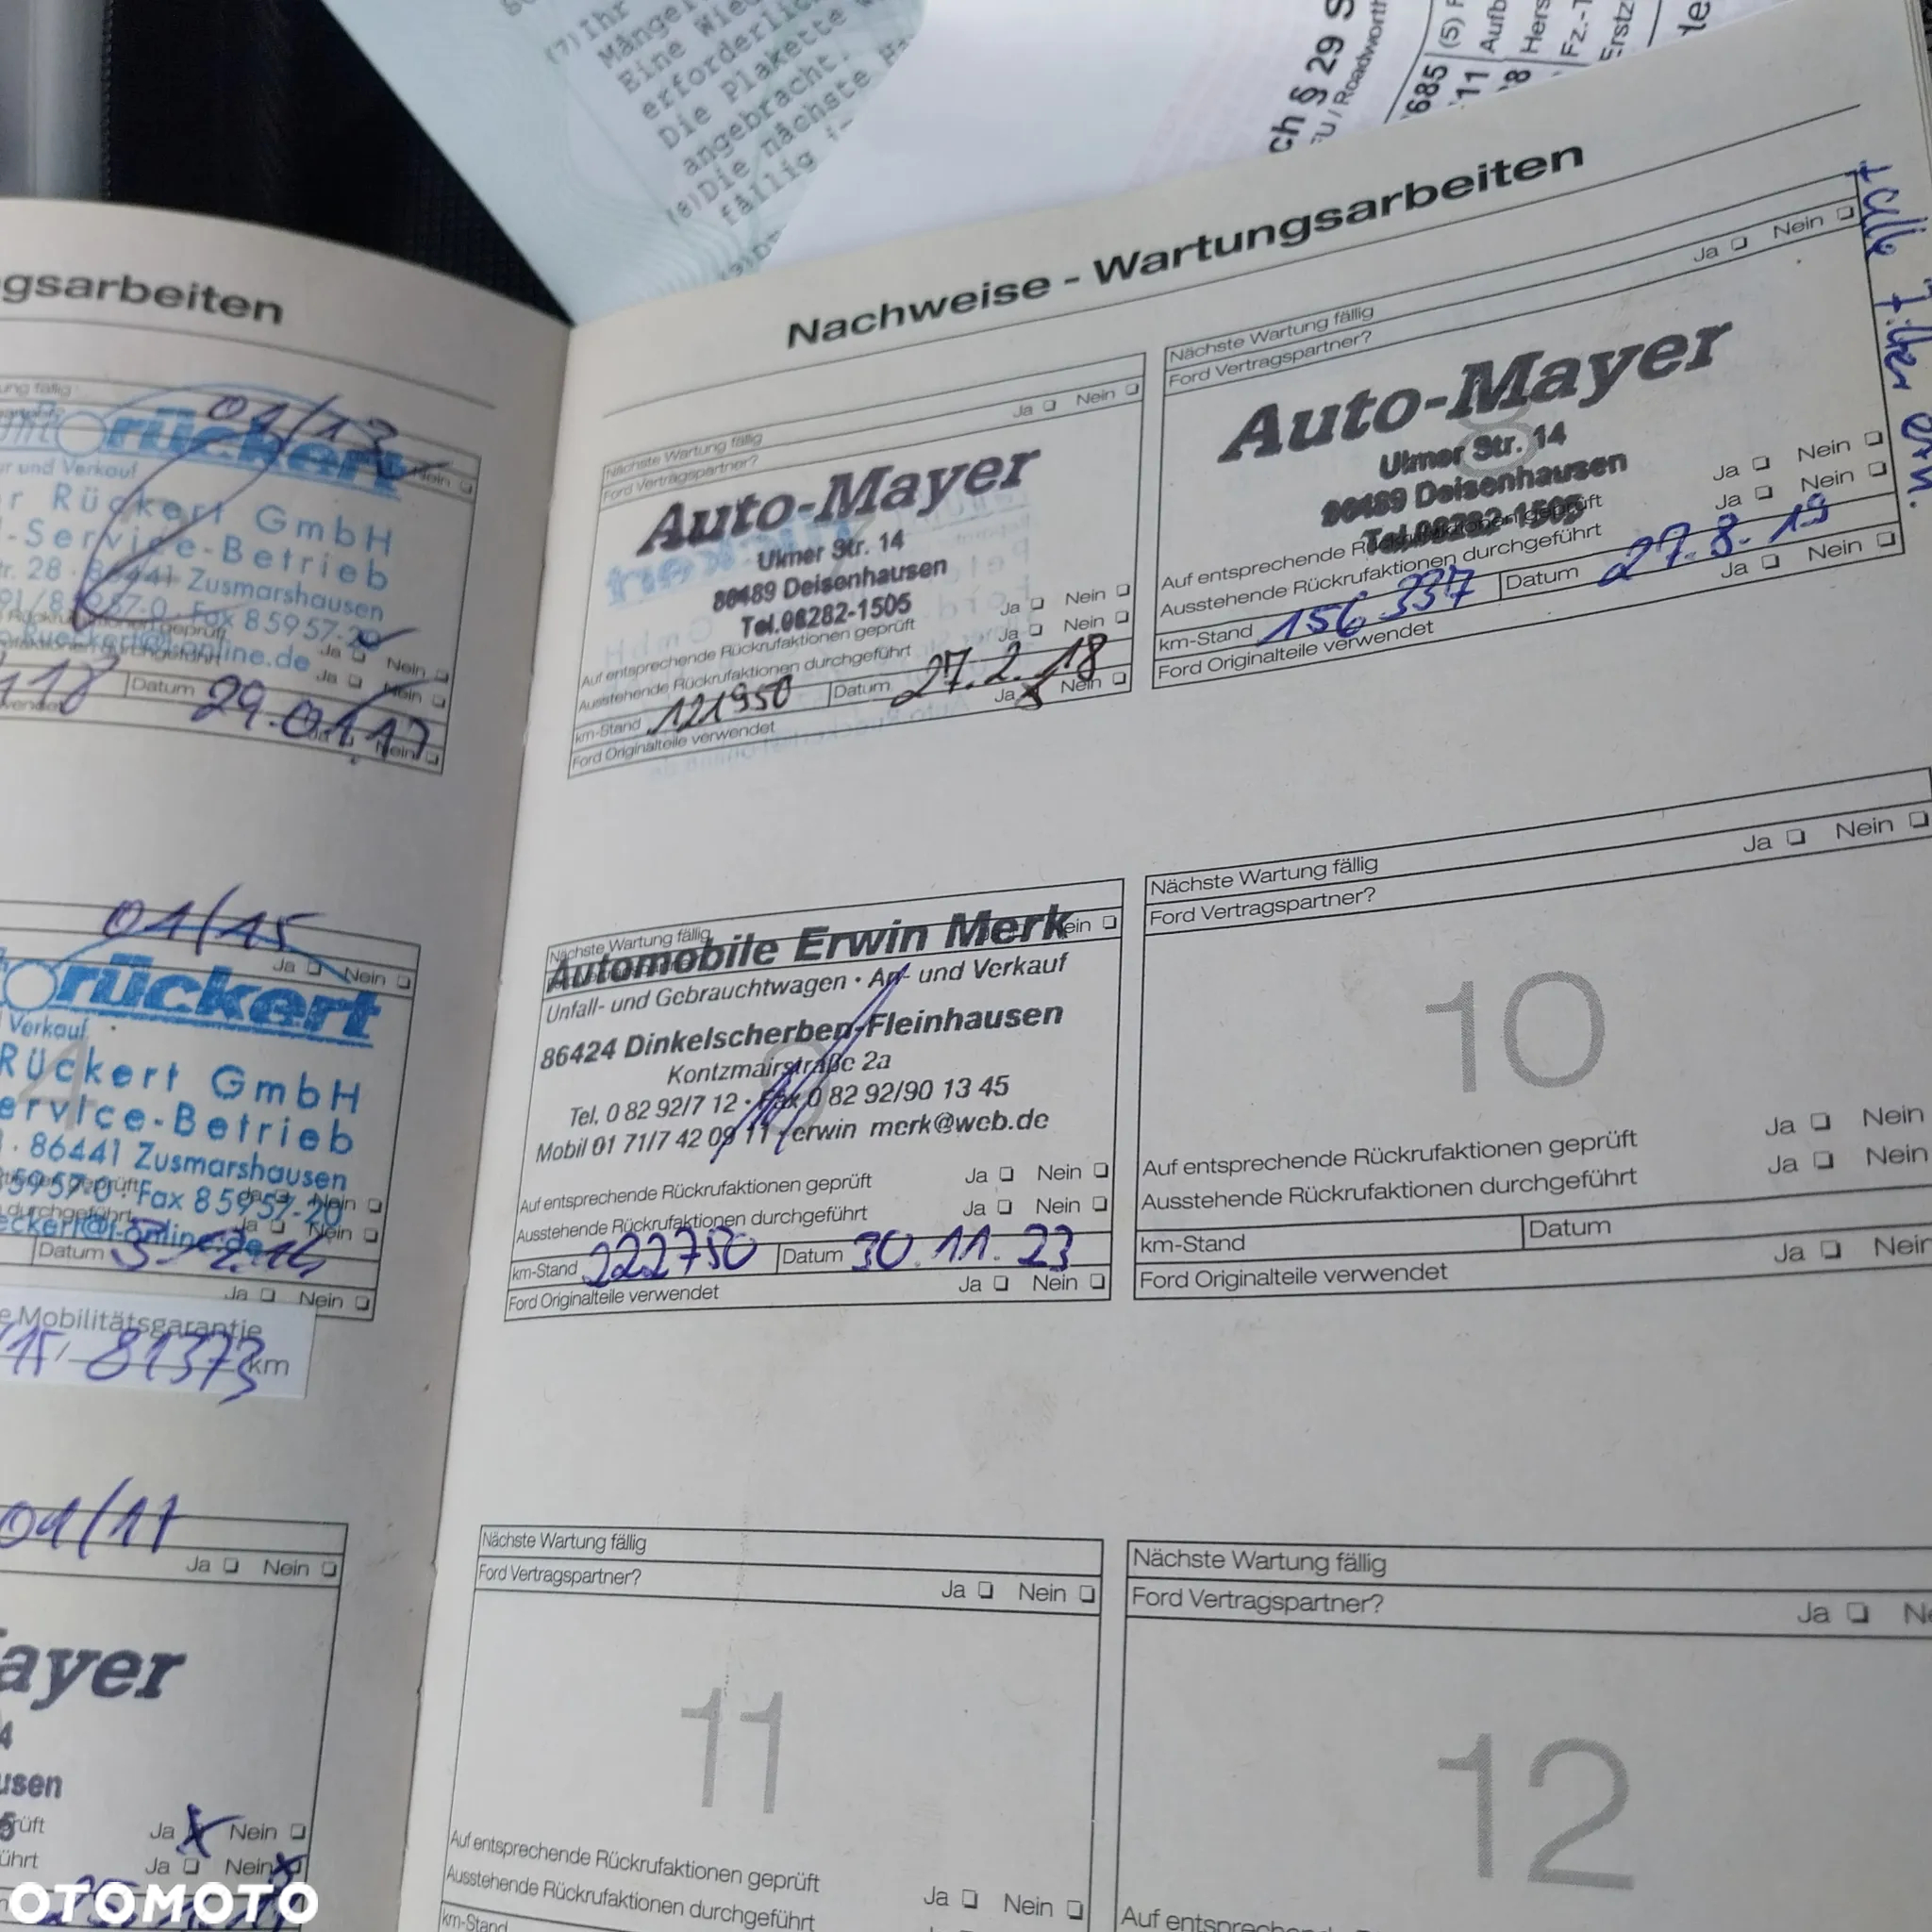 (7)Ihr
Mängel
Eine Wied
erforderlic
Die Plakette
angebracht.
(8)Die nächste
fällig
ch § 29 S
U / Roadworth
685
(5) F
11
Aufb
Hers
Fz.-
Erstz
gsarbeiten
ung fällig
01/13
rückert
r und Verkauf
r Rückert GmbH
-Service-Betrieb
r. 28 · 86441 Zusmarshausen
Fax 85957-20
Ja Nein
Ja Nein
Datum 29.01.17
Ja Nein
01/15
Ja Nein
rückert
Verkauf
Rückert GmbH
ervice-Betrieb
· 86441 Zusmarshausen
5957-0 · Fax 85957-20
Ja Nein
Ja Nein
Datum
Ja Nein
e Mobilitätsgarantie
81373 km
01/17
Ja Nein
ayer
4
usen
5
rüft Ja Nein
ührt Ja Nein
OTOMOTO
Nachweise - Wartungsarbeiten
Nächste Wartung fällig
Ford Vertragspartner? Ja Nein
Auto-Mayer
Ulmer Str. 14
86489 Deisenhausen
Tel.08282-1505
Auf entsprechende Rückrufaktionen geprüft Ja Nein
Ausstehende Rückrufaktionen durchgeführt Ja Nein
km-Stand 121950 Datum 27.2.18
Ford Originalteile verwendet Ja Nein
Nächste Wartung fällig
Ford Vertragspartner? Ja Nein
8
Auto-Mayer
Ulmer Str. 14
86489 Deisenhausen
Tel.08282-1505
Auf entsprechende Rückrufaktionen geprüft Ja Nein
Ausstehende Rückrufaktionen durchgeführt Ja Nein
km-Stand 156 337 Datum 27.8.19
Ford Originalteile verwendet Ja Nein
Nächste Wartung fällig
Nein
Automobile Erwin Merk
Unfall- und Gebrauchtwagen · An- und Verkauf
86424 Dinkelscherben-Fleinhausen
Kontzmairstraße 2a
9
Tel. 0 82 92/7 12 · Fax 0 82 92/90 13 45
Mobil 01 71/7 42 09 11 · erwin merk@web.de
Auf entsprechende Rückrufaktionen geprüft Ja Nein
Ausstehende Rückrufaktionen durchgeführt Ja Nein
km-Stand 222750 Datum 30.11.23
Ford Originalteile verwendet Ja Nein
Nächste Wartung fällig
Ford Vertragspartner? Ja Nein
10
Auf entsprechende Rückrufaktionen geprüft Ja Nein
Ausstehende Rückrufaktionen durchgeführt Ja Nein
km-Stand Datum
Ford Originalteile verwendet Ja Nein
Nächste Wartung fällig
Ford Vertragspartner? Ja Nein
11
Auf entsprechende Rückrufaktionen geprüft
Ausstehende Rückrufaktionen durchgeführt Ja Nein
km-Stand
Nächste Wartung fällig
Ford Vertragspartner? Ja Ne
12
Auf entsprechen